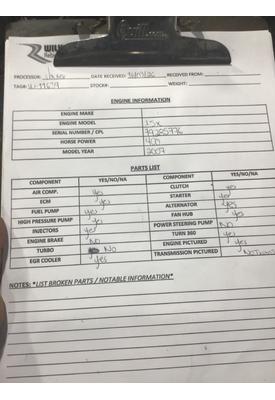 PROCESSOR: DATE RECEIVED: RECEIVED FROM:
TAG#: STOCK#: WEIGHT:
ENGINE INFORMATION
ENGINE MAKE
ENGINE MODEL ISX
SERIAL NUMBER / CPL 79285776
HORSE POWER 400
MODEL YEAR 2007
PARTS LIST
COMPONENT YES/NO/NA COMPONENT YES/NO/NA
AIR COMP. yes CLUTCH yes
ECM yes STARTER yes
FUEL PUMP yes ALTERNATOR yes
HIGH PRESSURE PUMP yes FAN HUB yes
INJECTORS yes POWER STEERING PUMP NO
ENGINE BRAKE NO TURN 360 yes
TURBO NO ENGINE PICTURED yes
EGR COOLER yes TRANSMISSION PICTURED
NOTES: *LIST BROKEN PARTS / NOTABLE INFORMATION*